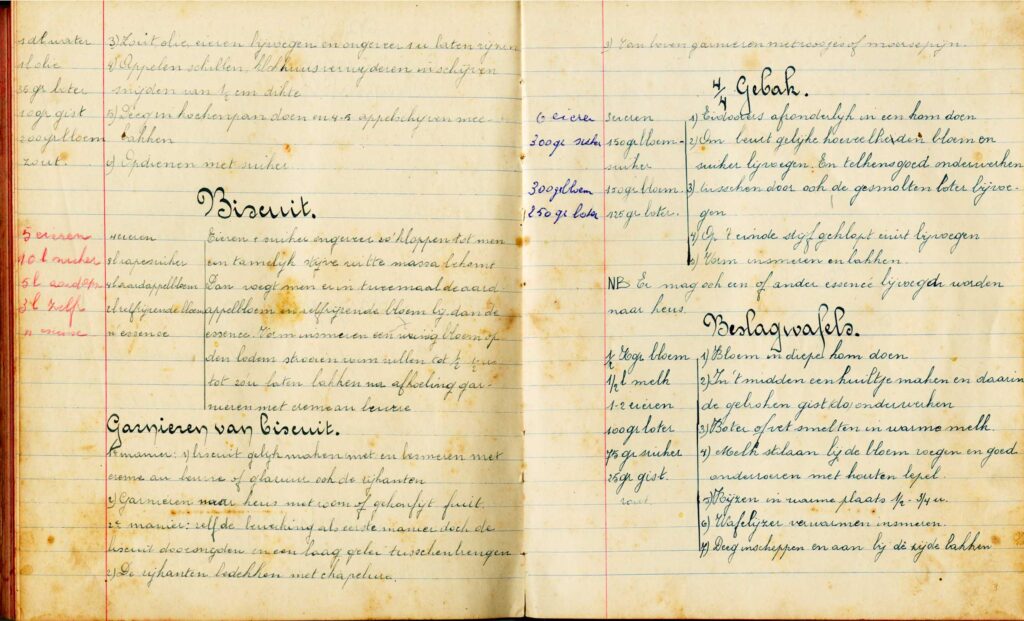 1 dl water 3) Zout olie eieren bijvoegen en ongeveer 1 u laten rijzen
1 l olie 4) Appelen schillen, klokhuis verwijderen in schijven
gr boter snijden van ½ cm dikte
10 gr gist 5) Deeg in koekenpan doen en 4-5 appelschijven mee
200 gr bloem bakken
zout. 6) Opdienen met suiker
Biscuit.
5 eieren 4 eieren Eieren & suiker ongeveer kloppen tot men
10 l suiker 8 l rapesuiker een tamelijk stijve witte massa bekomt
5 l aardap 4 l aardappelbloem Dan voegt men er in tweemaal de aard-
3 l zelfr zelfrijzende bloem appelbloem en zelfrijzende bloem bij dan de
essence essence. Vorm insmeren een weinig bloem op
den bodem strooien vorm vullen tot
tot laten bakken na afkoeling gar-
nieren met creme au beurre
Garnieren van biscuit.
1e manier: 1) biscuit gelijk maken met en besmeren met
creme au beurre of glazuur ook de zijkanten
2) Garnieren naar keus met room of gekonfijt fruit.
2e manier: zelfde bewerking als eerste manier doch de
biscuit doorsnijden en een laag gelei tusschenbrengen
2) De zijkanten bedekken met chapelure.
3) Van boven garnieren met roosjes of marsepijn.
4/4 Gebak.
6 eieren 3 eieren 1) Eidooiers afzonderlijk in een kom doen
300 gr suiker 150 gr bloem- 2) Om beurt gelijke hoeveelheden bloem en
suiker suiker bijvoegen. En telkens goed onderwerken
300 gr bloem 150 gr bloem. 3) tusschen door ook de gesmolten boter bijvoe-
250 gr boter 125 gr boter. gen
4) Op 't einde stijf geklopt eiwit bijvoegen
5) Vorm insmeren en bakken.
NB Er mag ook een of ander essence bijvoegd worden
naar keus.
Beslagwafels.
½ Kgr bloem 1) Bloem in diepe kom doen
1/2 l melk 2) In 't midden een kuiltje maken en daarin
1-2 eieren de gebroken gist & do onderwerken
100 gr boter 3) Boter of vet smelten in warme melk.
75 gr suiker 4) Melk stilaan bij de bloem voegen en goed
25 gr gist. onderroeren met houten lepel.
zout 5) Rijzen in warme plaats 1/2 - 3/4 u.
6) Wafelijzer verwarmen insmeren.
7) Deeg inscheppen en aan bij de zijde bakken
3